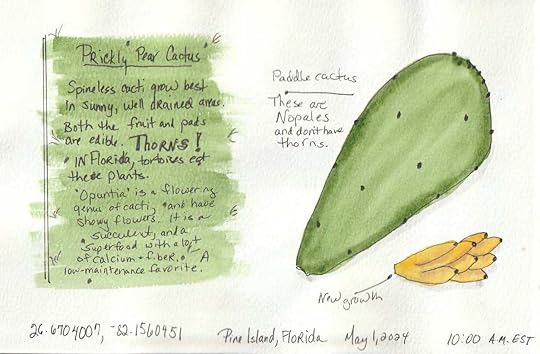 "Prickly Pear Cactus"
Spineless cacti grow best
in sunny, well drained areas.
Both the fruit and pads
are edible. THORNS!
IN Florida, tortoises eat
these plants.
"Opuntia" is a flowering
genus of cacti, and have
showy flowers. It is a
succulent, and a
superfood with a lot
of calcium + fiber. A
low-maintenance favorite.
Paddle cactus
These are
Nopales
and don't have
thorns.
New growth
26.6704007, -82.1560451
Pine Island, Florida
May 1, 2024
10:00 A.M. EST